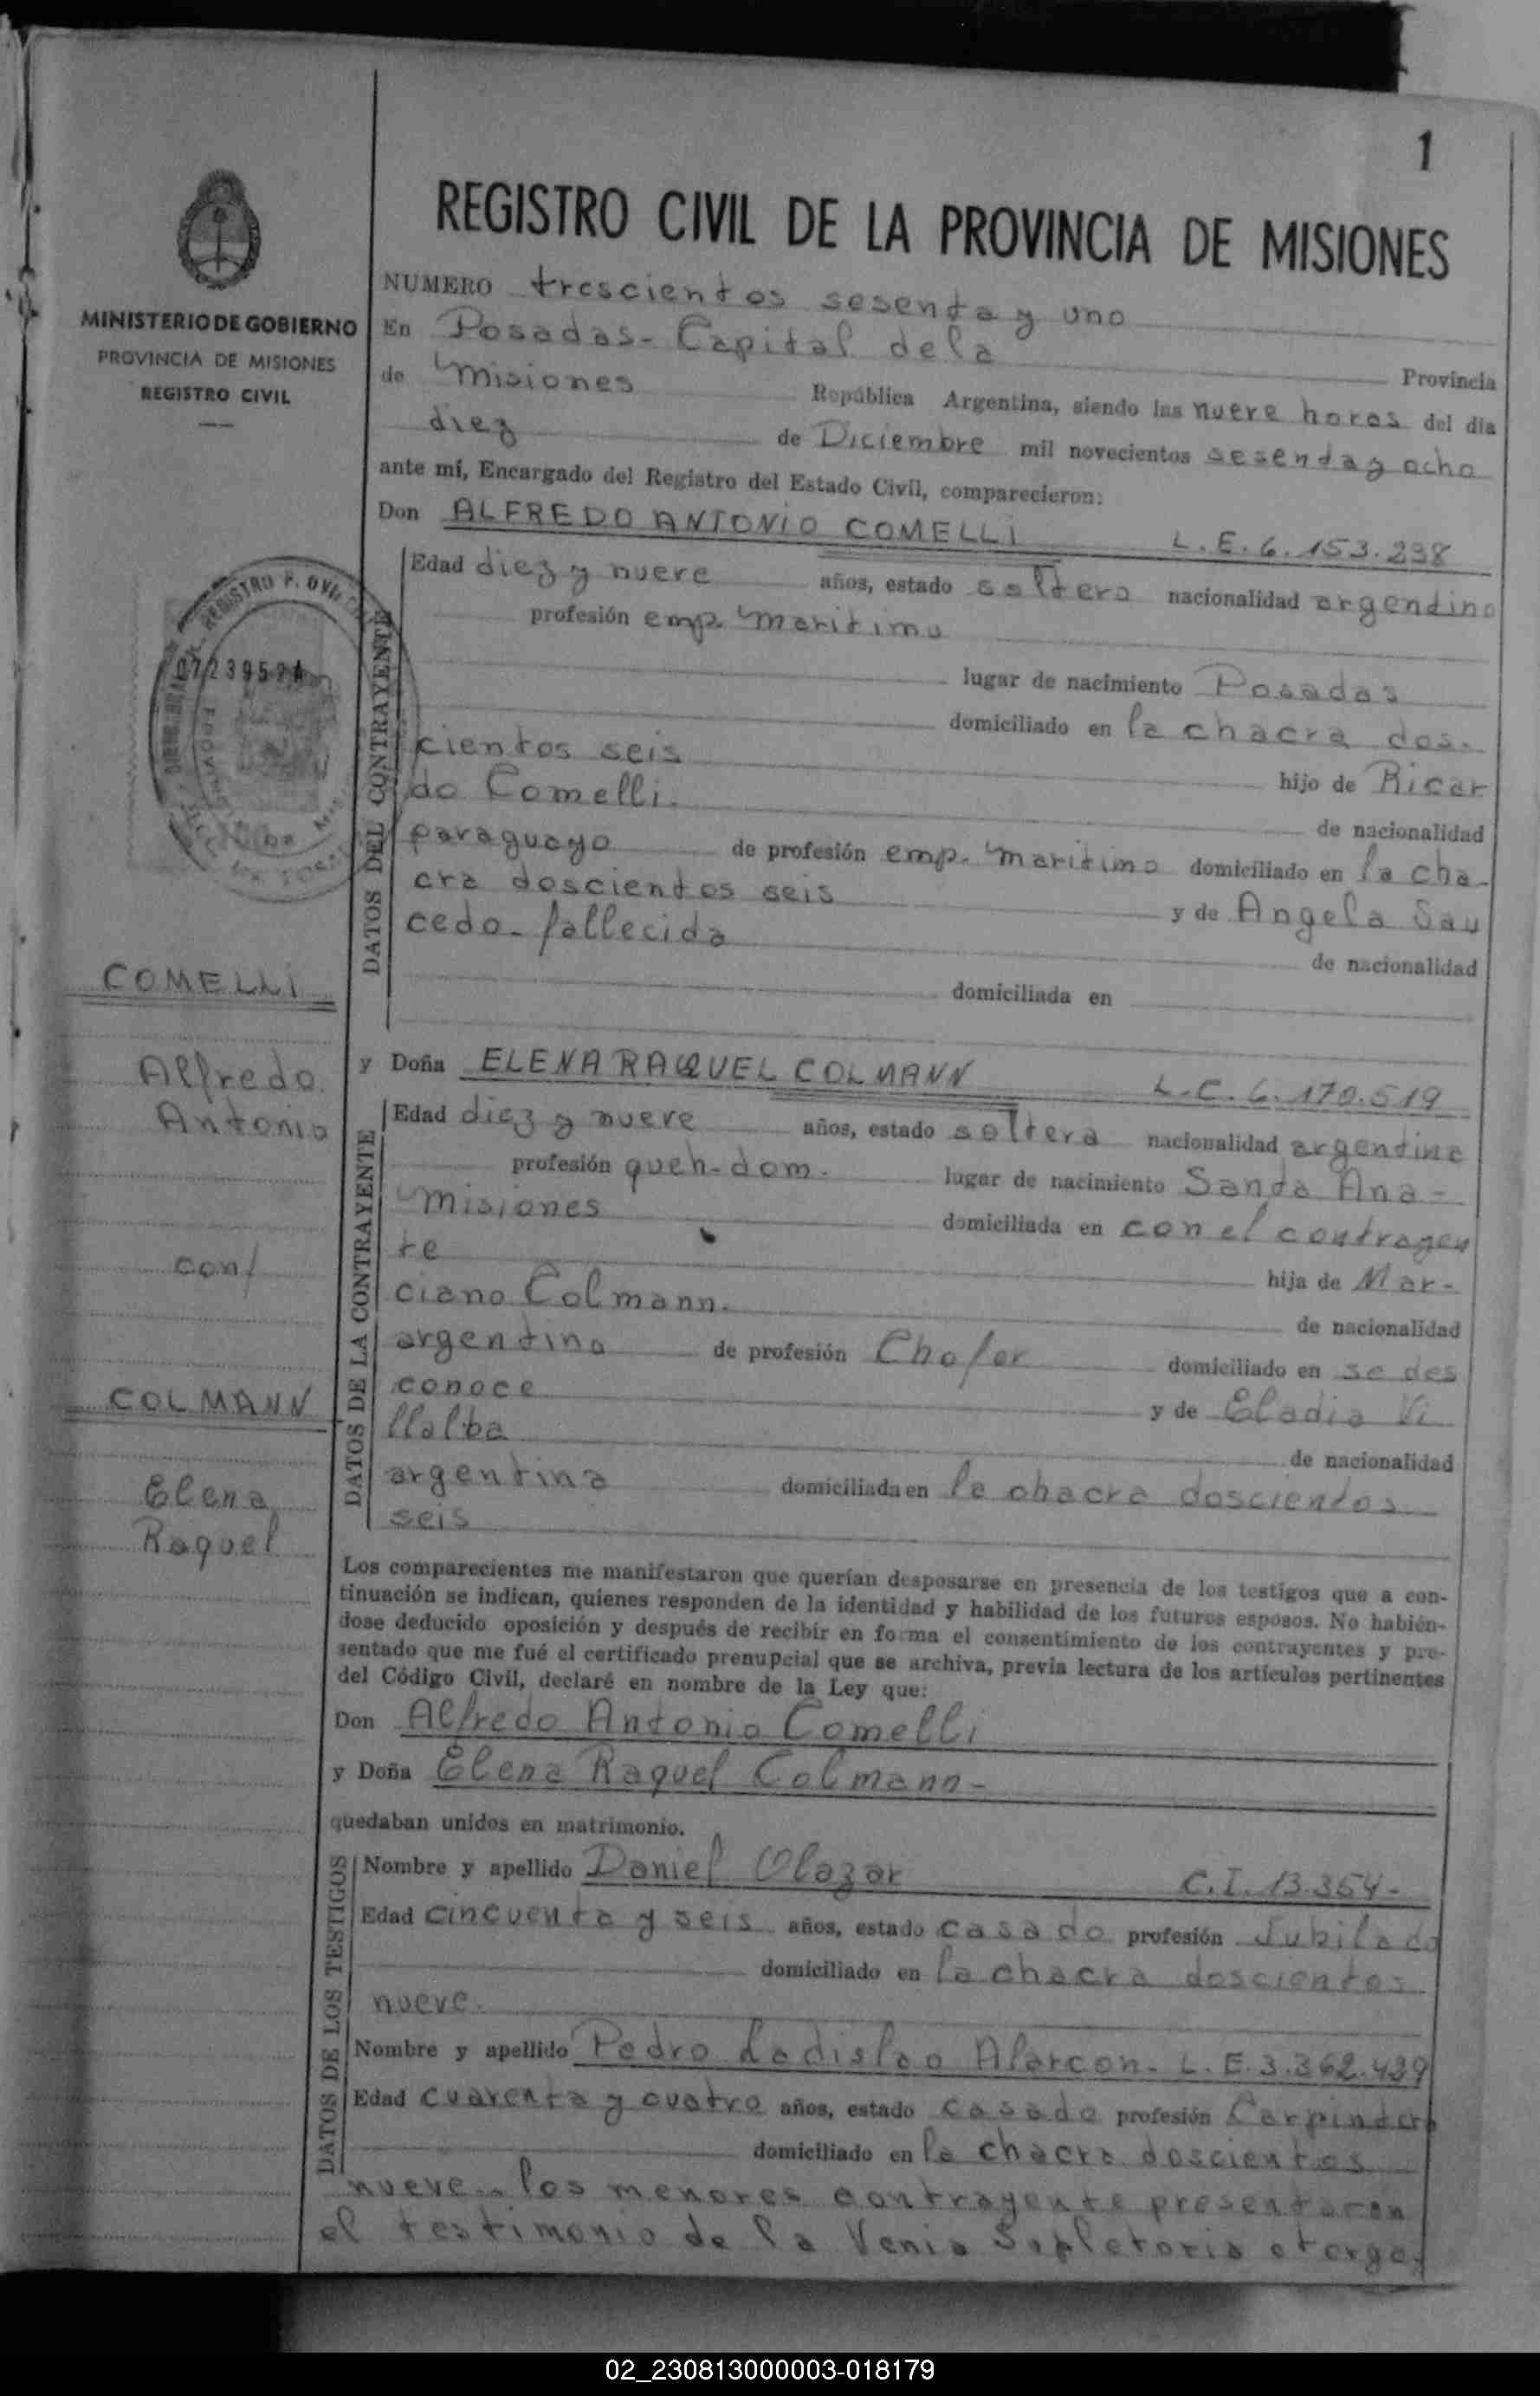 1
REGISTRO CIVIL DE LA PROVINCIA DE MISIONES
MINISTERIO DE GOBIERNO
PROVINCIA DE MISIONES
REGISTRO CIVIL
NUMERO trescientos sesenta y uno
En Posadas - Capital de la Provincia
de Misiones República Argentina, siendo las nueve horas del día
diez de Diciembre mil novecientos sesenta y ocho
ante mí, Encargado del Registro del Estado Civil, comparecieron:
Don ALFREDO ANTONIO COMELLI L.E. 6.153.298
DATOS DEL CONTRAYENTE
Edad diez y nueve años, estado soltero nacionalidad argentino
profesión emp. maritimo
lugar de nacimiento Posadas
domiciliado en la chacra dos-
cientos seis hijo de Ricar
do Comelli. de nacionalidad
paraguayo de profesión emp. maritimo domiciliado en la cha-
cra doscientos seis y de Angela Sau
cedo - fallecida de nacionalidad
domiciliada en
y Doña ELENA RAQUEL COLMANN L.C. 6.170.519
DATOS DE LA CONTRAYENTE
Edad diez y nueve años, estado soltera nacionalidad argentina
profesión queh-dom. lugar de nacimiento Santa Ana -
Misiones domiciliada en con el contrayen
te hija de Mar-
ciano Colmann. de nacionalidad
argentino de profesión Chofer domiciliado en se des
conoce y de Eladia Vi
llalba de nacionalidad
argentina domiciliada en la chacra doscientos
seis
COMELLI
Alfredo
Antonio
con/
COLMANN
Elena
Raquel
Los comparecientes me manifestaron que querían desposarse en presencia de los testigos que a con-
tinuación se indican, quienes responden de la identidad y habilidad de los futuros esposos. No habién-
dose deducido oposición y después de recibir en forma el consentimiento de los contrayentes y pre-
sentado que me fué el certificado prenupcial que se archiva, previa lectura de los artículos pertinentes
del Código Civil, declaré en nombre de la Ley que:
Don Alfredo Antonio Comelli
y Doña Elena Raquel Colmann -
quedaban unidos en matrimonio.
DATOS DE LOS TESTIGOS
Nombre y apellido Daniel Olazar C.I. 13.354 -
Edad cincuenta y seis años, estado casado profesión Jubilado
domiciliado en la chacra doscientos
nueve.
Nombre y apellido Pedro Ladislao Alarcon - L.E. 3.362.439
Edad cuarenta y cuatro años, estado casado profesión Carpintero
domiciliado en la chacra doscientos
nueve.. los menores contrayente presentaron
el testimonio de la Venia Supletoria otorga
02_230813000003-018179